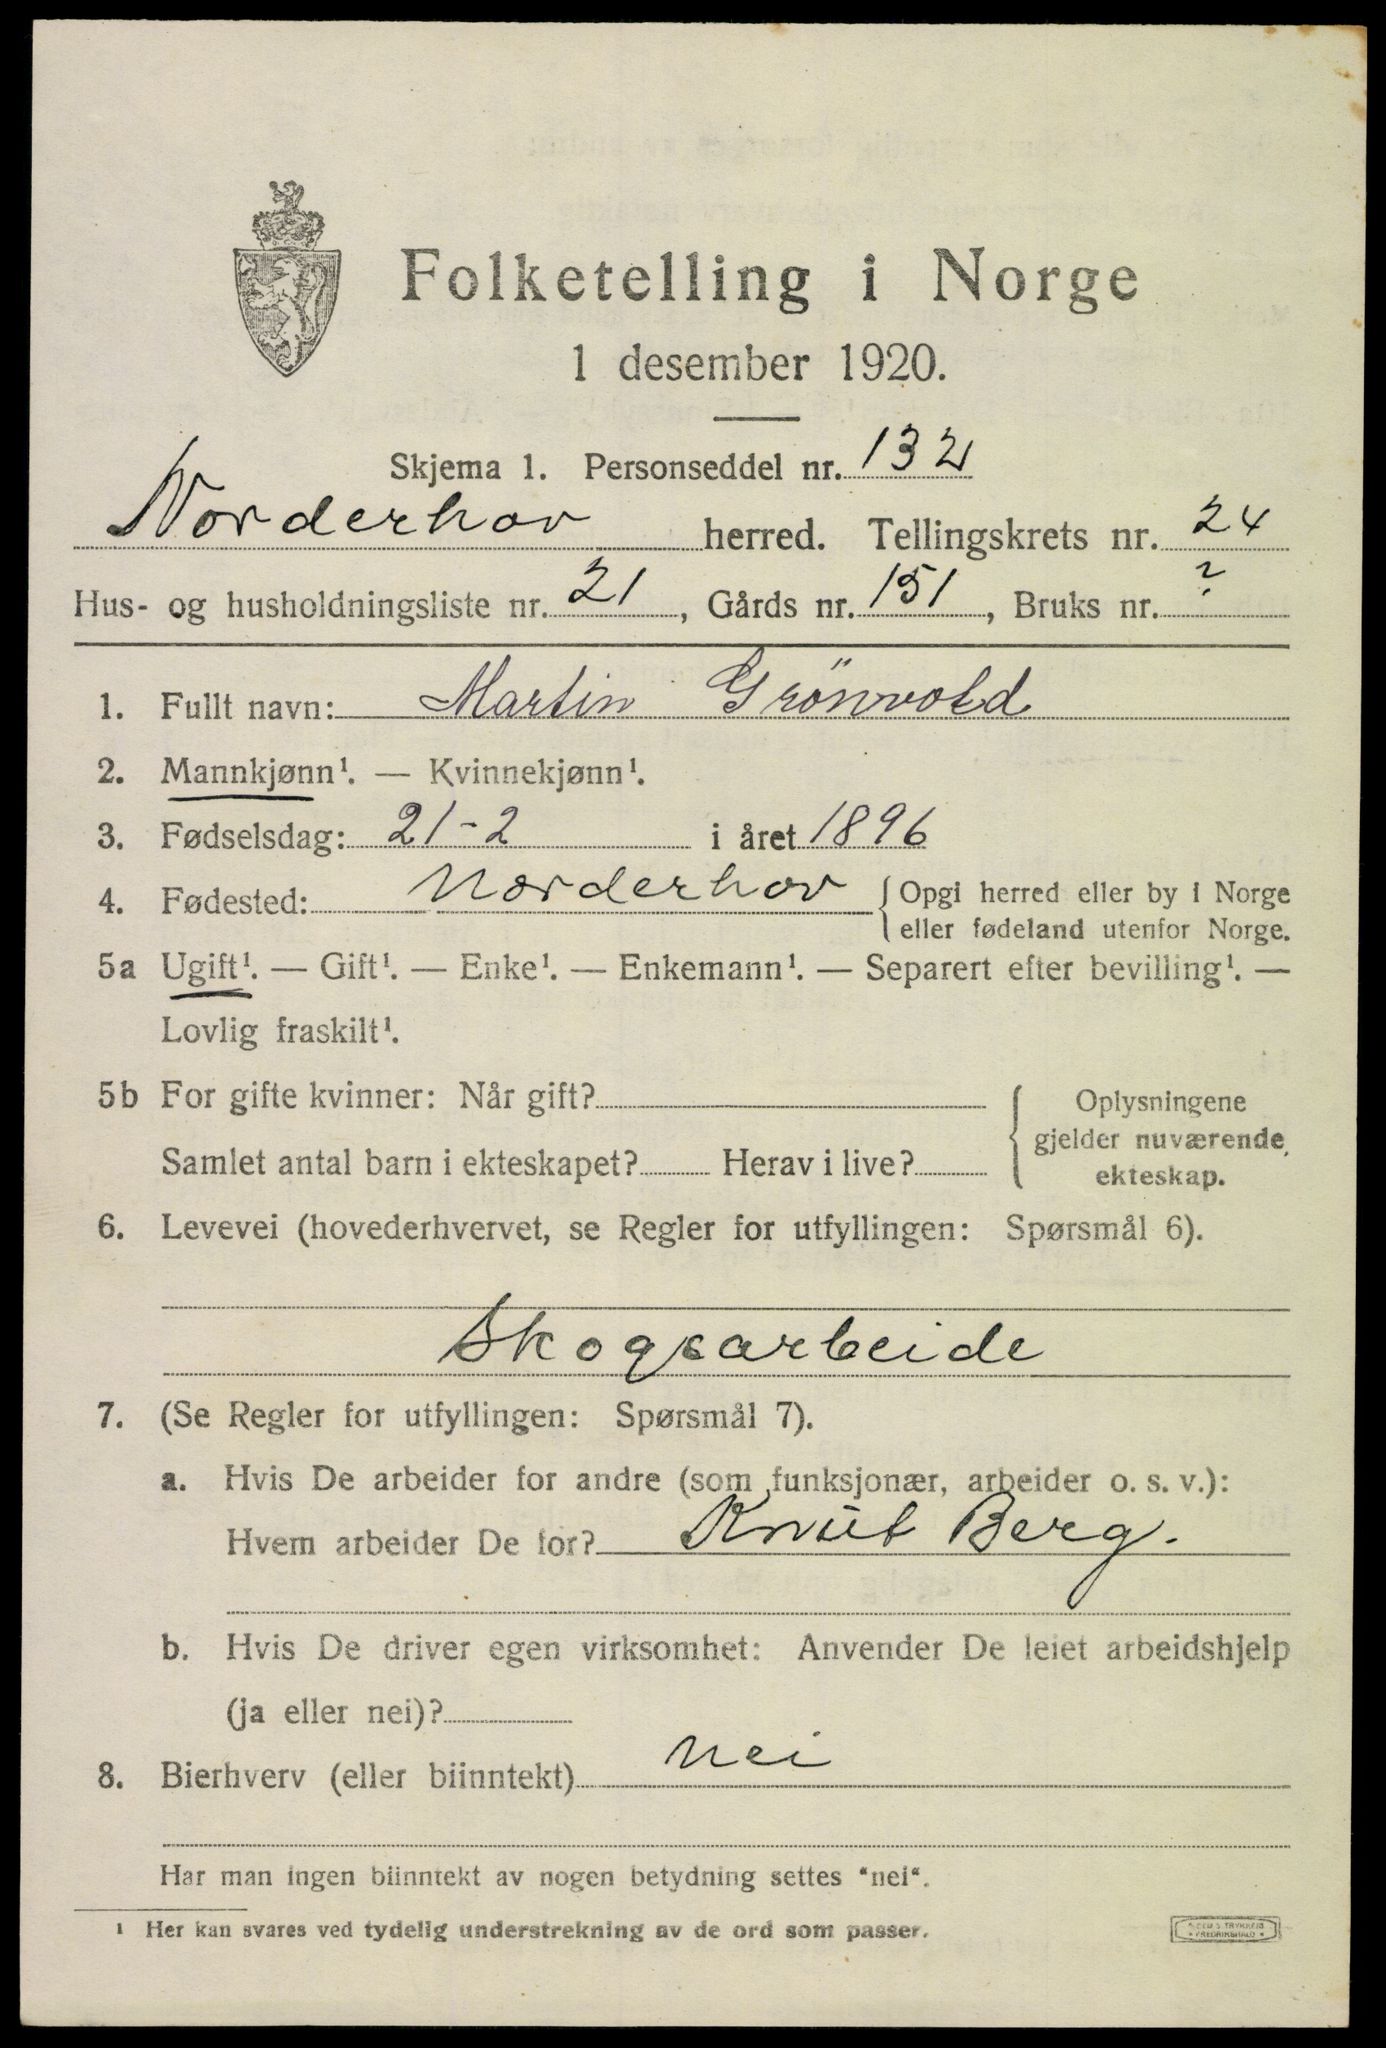 Folketelling i Norge
1 desember 1920.
Skjema 1. Personseddel nr. 132
Norderhov herred. Tellingskrets nr. 24
Hus- og husholdningsliste nr. 21, Gårds nr. 151, Bruks nr. ?
1. Fullt navn: Martin Grönvold
2. Mannkjønn¹. — Kvinnekjønn¹.
3. Fødselsdag: 21-2 i året 1896
4. Fødested: Norderhov { Opgi herred eller by i Norge
eller fødeland utenfor Norge.
5a Ugift¹. — Gift¹. — Enke¹. — Enkemann¹. — Separert efter bevilling¹. —
Lovlig fraskilt¹.
5b For gifte kvinner: Når gift?
Samlet antal barn i ekteskapet? Herav i live?
{ Oplysningene
gjelder nuværende
ekteskap.
6. Levevei (hovederhvervet, se Regler for utfyllingen: Spørsmål 6).
Skogsarbeide
7. (Se Regler for utfyllingen: Spørsmål 7).
a. Hvis De arbeider for andre (som funksjonær, arbeider o. s. v.):
Hvem arbeider De for? Knut Berg.
b. Hvis De driver egen virksomhet: Anvender De leiet arbeidshjelp
(ja eller nei)?
8. Bierhverv (eller biinntekt) Nei
Har man ingen biinntekt av nogen betydning settes "nei".
¹ Her kan svares ved tydelig understrekning av de ord som passer.
TRYKKERI
FREDRIKSHALD